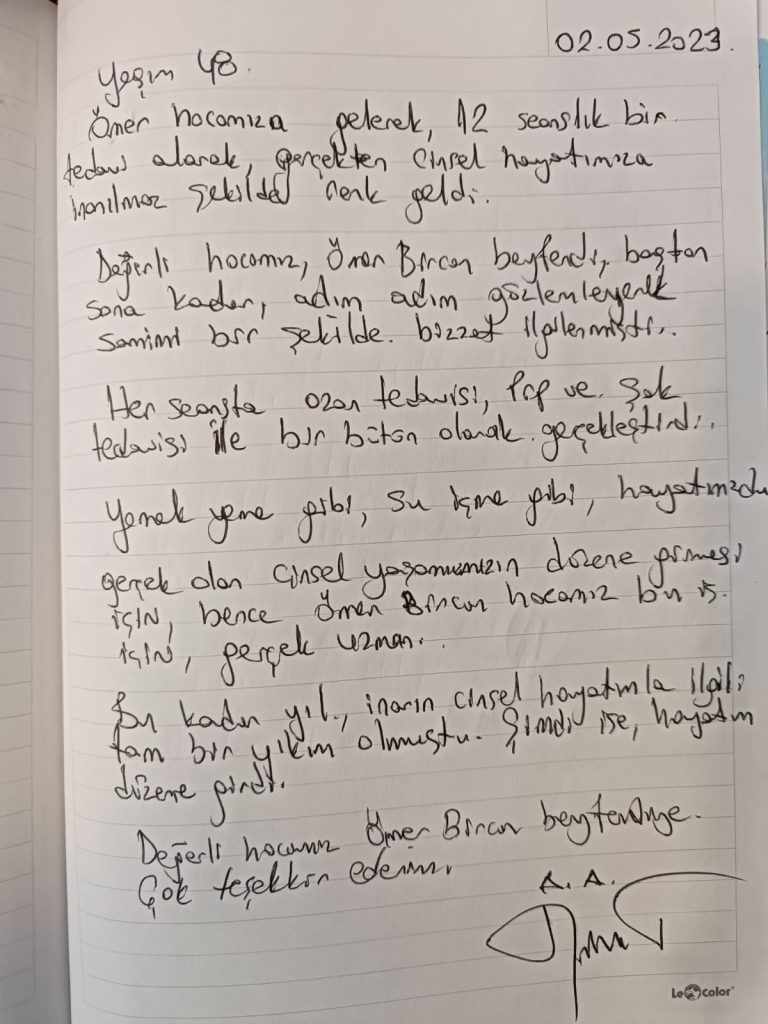 02.05.2023.
Yaşım 48.
Ömer hocamıza gelerek, 12 seanslık bir.
tedavi alarak, gerçekten cinsel hayatımıza
inanılmaz şekilde renk geldi.
Değerli hocamız, Ömer Bircan beyfendi, baştan
sona kadar, adım adım gözlemleyerek
samimi bir şekilde. bizzat ilgilenmiştir.
Her seansta ozon tedavisi, PRP ve. Şok
tedavisi ile bir bütün olarak. gerçekleştirdi.
Yemek yeme gibi, su içme gibi, hayatımızda
gerçek olan cinsel yaşamımızın düzene girmesi
için, bence Ömer Bircan hocamız bu iş.
için, gerçek uzman.
Bu kadar yıl., inanın cinsel hayatımla ilgili
tam bir yıkım olmuştu. Şimdi ise, hayatım
düzene girdi.
Değerli hocamız Ömer Bircan beyfendiye.
Çok teşekkür ederim.
A. A.
Le color